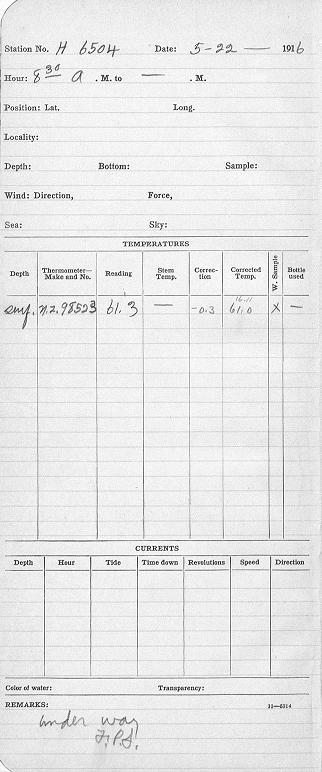 Station No. H 6504 Date: 5-22 — 1916
Hour: 8 30 a . M. to — . M.
Position: Lat. Long.
Locality:
Depth: Bottom: Sample:
Wind: Direction, Force,
Sea: Sky:
TEMPERATURES
Depth Thermometer— Make and No. Reading Stem Temp. Correction Corrected Temp. W. Sample Bottle used
16.11
surf. N.Z. 98523 61.3 — -0.3 61.0 X —
CURRENTS
Depth Hour Tide Time down Revolutions Speed Direction
Color of water: Transparency:
REMARKS: 11—6314
under way
F.P.S.